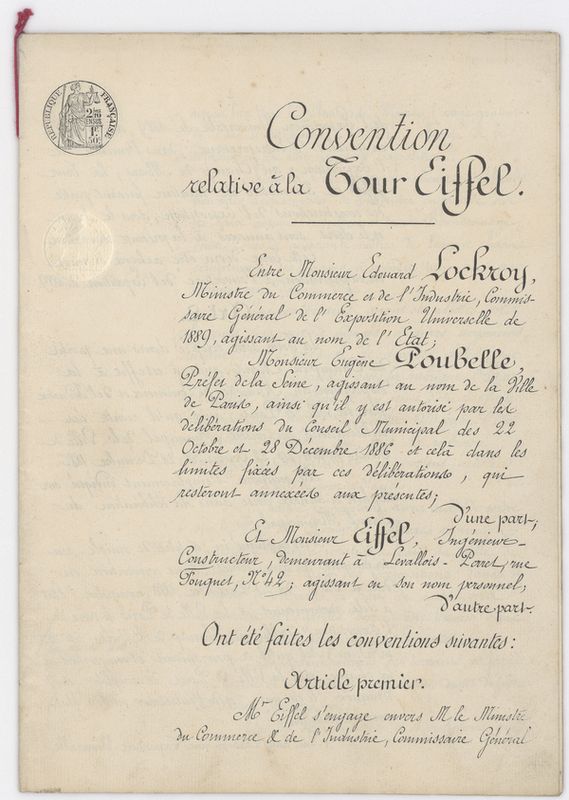 RÉPUBLIQUE FRANÇAISE
2/10
EN SUS
1F
50C
Convention
relative à la Tour Eiffel.
Entre Monsieur Edouard Lockroy,
Ministre du Commerce et de l'Industrie, Commis-
saire Général de l'Exposition Universelle de
1889, agissant au nom de l'Etat;
Monsieur Eugène Poubelle,
Préfet de la Seine, agissant au nom de la Ville
de Paris, ainsi qu'il y est autorisé par les
délibérations du Conseil Municipal des 22
Octobre et 28 Décembre 1886 et celà dans les
limites fixées par ces délibérations, qui
resteront annexées aux présentes;
D'une part;
Et Monsieur Eiffel, Ingénieur-
Constructeur, demeurant à Levallois-Perret, rue
Fouquet, N° 42; agissant en son nom personnel;
D'autre part.
Ont été faites les conventions suivantes:
Article premier.
Mr Eiffel s'engage envers M le Ministre
du Commerce & de l'Industrie, Commissaire Général